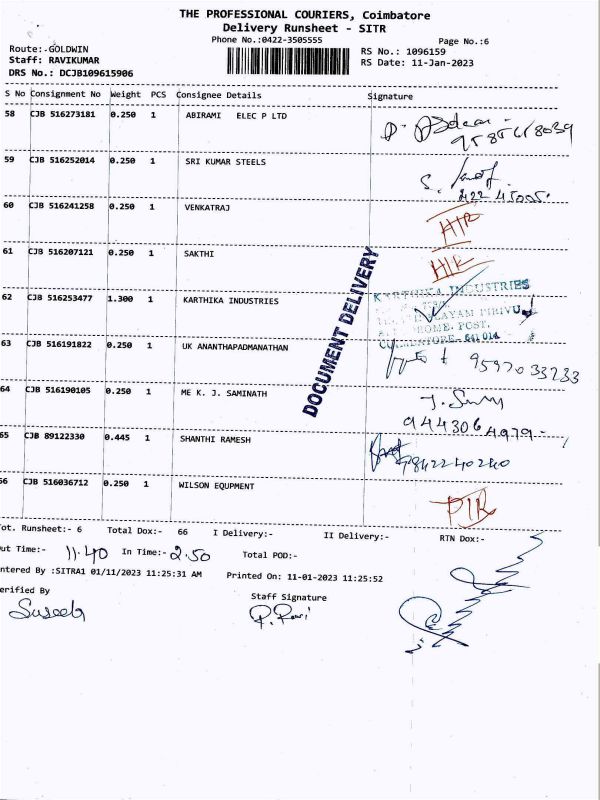 THE PROFESSIONAL COURIERS, Coimbatore
Delivery Runsheet - SITR
Phone No.:0422-3505555
Page No.:6
Route:-GOLDWIN
RS No.: 1096159
Staff: RAVIKUMAR
RS Date: 11-Jan-2023
DRS No.: DCJB109615906
S No Consignment No Weight PCS Consignee Details Signature
58 CJB 516273181 0.250 1 ABIRAMI ELEC P LTD
59 CJB 516252014 0.250 1 SRI KUMAR STEELS
60 CJB 516241258 0.250 1 VENKATRAJ
61 CJB 516207121 0.250 1 SAKTHI
62 CJB 516253477 1.300 1 KARTHIKA INDUSTRIES
KARTHIKA INDUSTRIES
PIRIVU
POST.
COIMBATORE - 641 014
DOCUMENT DELIVERY
63 CJB 516191822 0.250 1 UK ANANTHAPADMANATHAN
9597033233
64 CJB 516190105 0.250 1 ME K. J. SAMINATH
944306 4979-
65 CJB 89122330 0.445 1 SHANTHI RAMESH
9842240240
66 CJB 516036712 0.250 1 WILSON EQUPMENT
Tot. Runsheet:- 6 Total Dox:- 66 I Delivery:- II Delivery:- RTN Dox:-
Out Time:- 11.40 In Time:- 2.50 Total POD:-
Entered By :SITRA1 01/11/2023 11:25:31 AM Printed On: 11-01-2023 11:25:52
Verified By
Staff Signature
R. Ravi